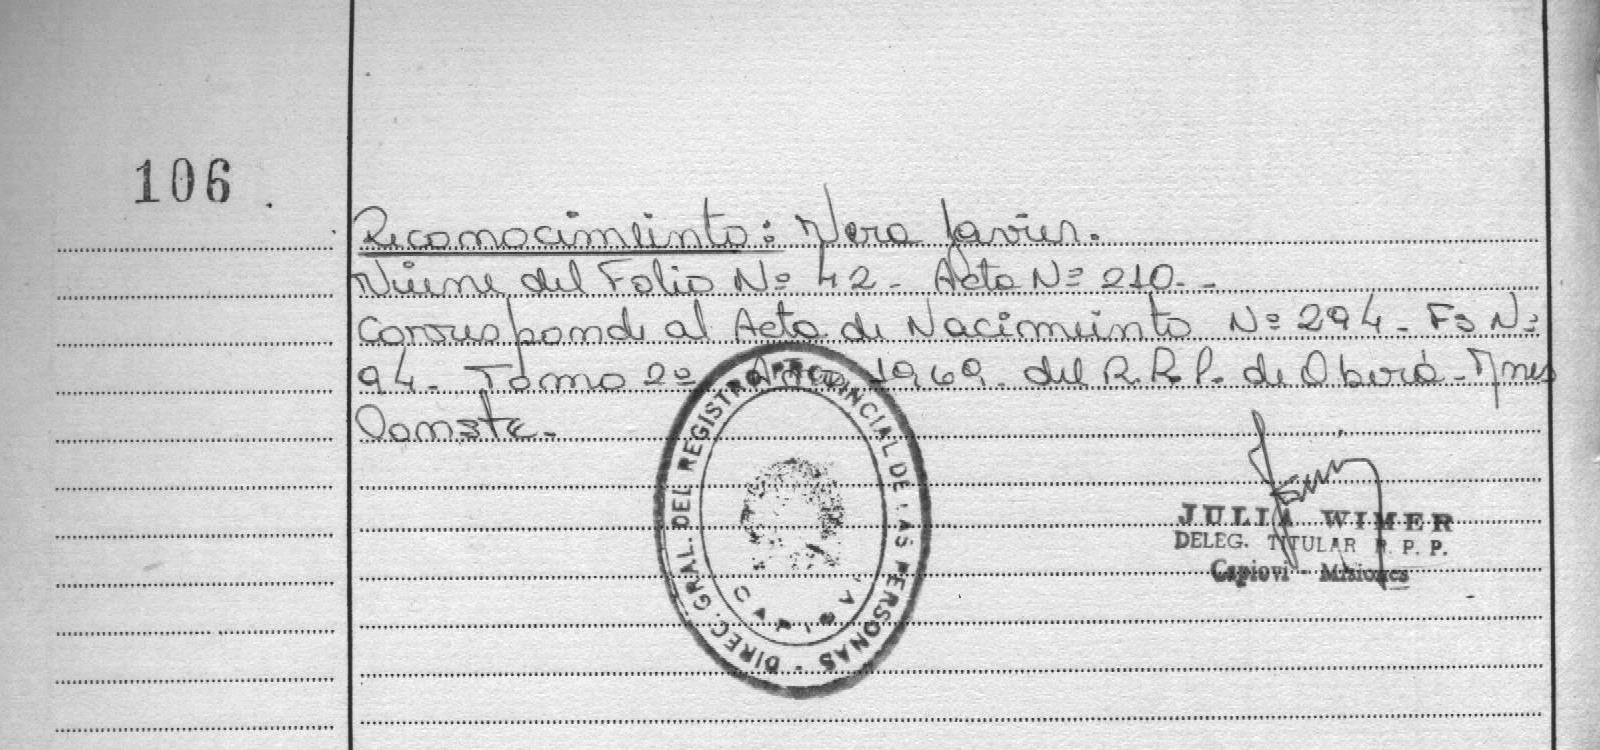 106.
Reconocimiento: Vera Javier.
Viene del Folio Nº 42 - Acta Nº 210 - -
Corresponde al Acta de Nacimiento Nº 294 - Fº Nº
94 - Tomo 2º Año 1969 del R.R.P. de Oberá - Mnes
Conste -
DIREC. GRAL. DEL REGISTRO PROVINCIAL DE LAS PERSONAS -
CAPIOVI
JULIA WIMER
DELEG. TITULAR R. P. P.
Capiovi - Misiones